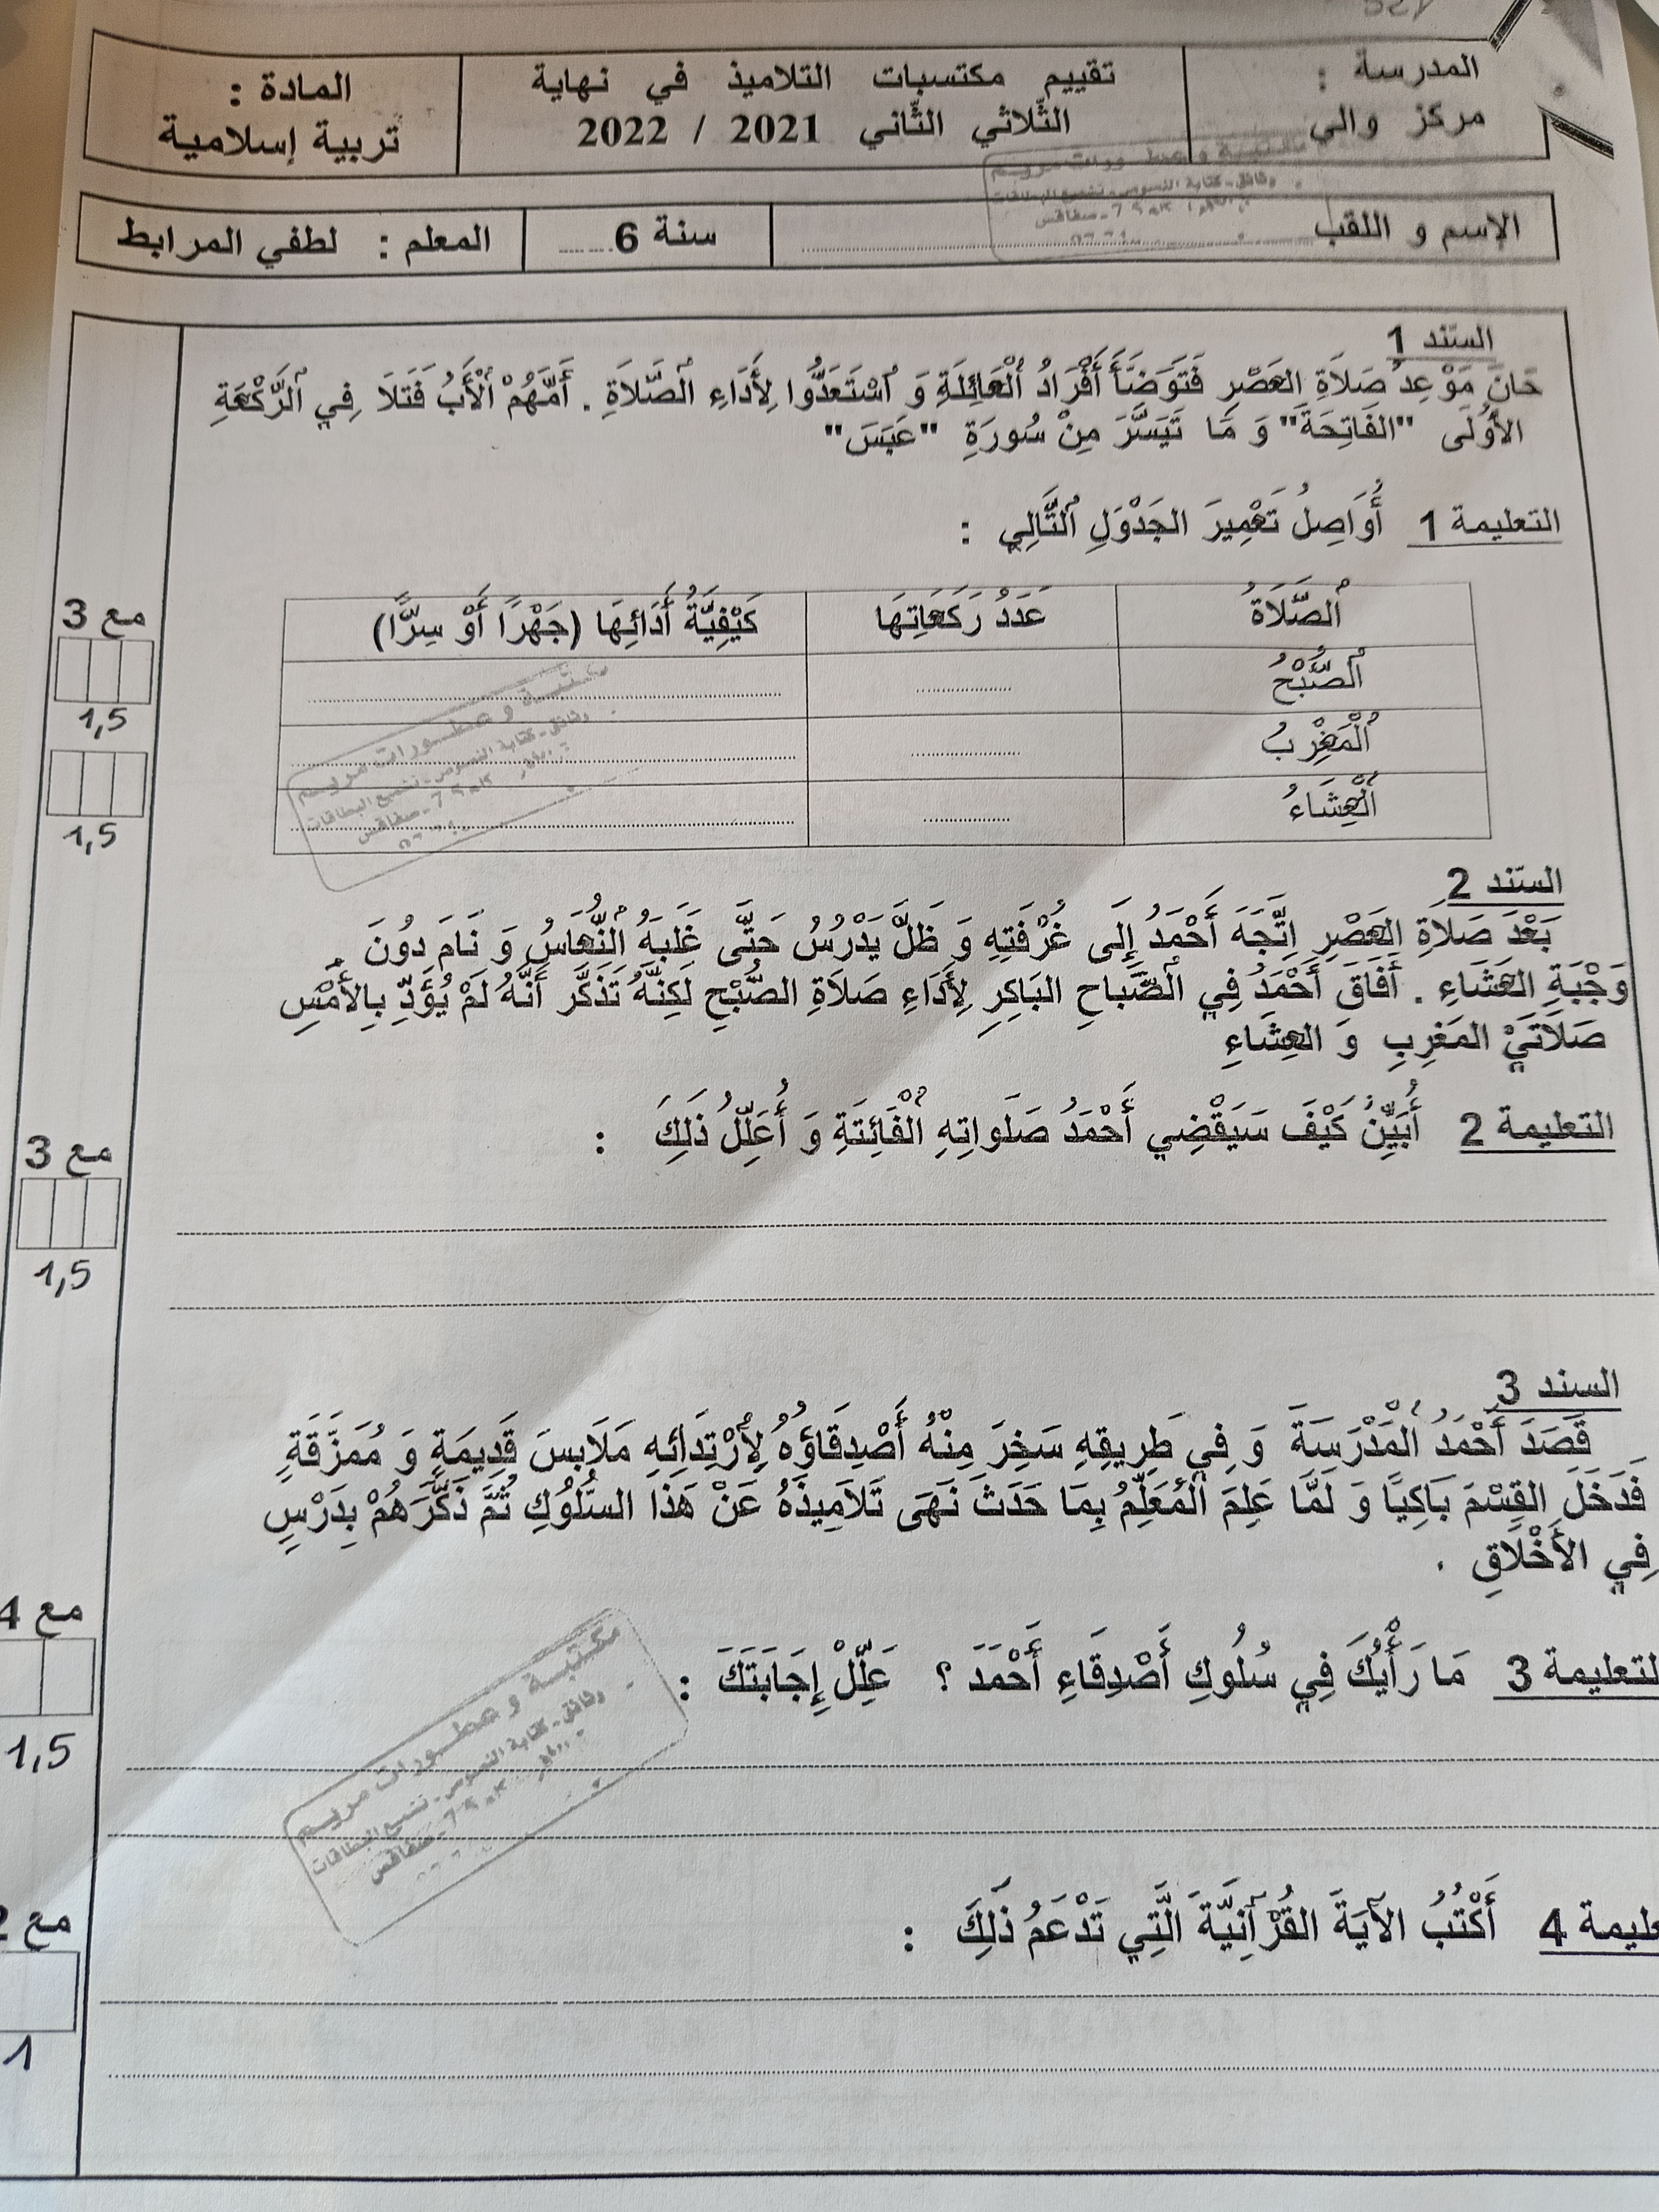 المدرسة :
مركز والي
تقييم مكتسبات التلاميذ في نهاية
الثّلاثي الثّاني 2021 / 2022
المادة :
تربية إسلامية
الإسم و اللقب
سنة 6
المعلم : لطفي المرابط
السّند 1
حَانَ مَوْعِدُ صَلَاةِ العَصْرِ فَتَوَضَّأَ أَفْرَادُ ٱلْعَائِلَةِ وَ ٱسْتَعَدُّوا لِأَدَاءِ ٱلصَّلَاةِ . أَمَّهُمْ ٱلْأَبُ فَتَلَا فِي ٱلرَّكْعَةِ
الأُولَى "الفَاتِحَةَ" وَ مَا تَيَسَّرَ مِنْ سُورَةِ "عَبَسَ"
التعليمة 1 أُوَاصِلُ تَعْمِيرَ الجَدْوَلِ ٱلتَّالِي :
ٱلصَّلَاةُ عَدَدُ رَكَعَاتِهَا كَيْفِيَّةُ أَدَائِهَا (جَهْرًا أَوْ سِرًّا)
ٱلصُّبْحُ
ٱلْمَغْرِبُ
ٱلْعِشَاءُ
مع 3
1,5
1,5
السّند 2
بَعْدَ صَلاَةِ العَصْرِ اِتَّجَهَ أَحْمَدُ إِلَى غُرْفَتِهِ وَ ظَلَّ يَدْرُسُ حَتَّى غَلَبَهُ ٱلنُّعَاسُ وَ نَامَ دُونَ
وَجْبَةِ العَشَاءِ . أَفَاقَ أَحْمَدُ فِي ٱلصَّبَاحِ البَاكِرِ لِأَدَاءِ صَلَاةِ الصُّبْحِ لَكِنَّهُ تَذَكَّرَ أَنَّهُ لَمْ يُؤَدِّ بِالأَمْسِ
صَلَاتَيْ المَغْرِبِ وَ العِشَاءِ
التعليمة 2 أُبَيِّنُ كَيْفَ سَيَقْضِي أَحْمَدُ صَلَواتِهِ ٱلْفَائِتَةِ وَ أُعَلِّلُ ذَلِكَ :
مع 3
1,5
السند 3
قَصَدَ أَحْمَدُ ٱلْمَدْرَسَةَ وَ فِي طَرِيقِهِ سَخِرَ مِنْهُ أَصْدِقَاؤُهُ لِٱرْتِدَائِهِ مَلَابِسَ قَدِيمَةٍ وَ مُمَزَّقَةٍ
فَدَخَلَ القِسْمَ بَاكِيًا وَ لَمَّا عَلِمَ ٱلمُعَلِّمُ بِمَا حَدَثَ نَهَى تَلَامِيذَهُ عَنْ هَذَا السُّلُوكِ ثُمَّ ذَكَّرَهُمْ بِدَرْسٍ
فِي الأَخْلَاقِ .
لتعليمة 3 مَا رَأْيُكَ فِي سُلُوكِ أَصْدِقَاءِ أَحْمَدَ ؟ عَلِّلْ إِجَابَتَكَ :
مع 4
1,5
عليمة 4 أَكْتُبُ الآيَةَ القُرْآنِيَّةَ الَّتِي تَدْعَمُ ذَلِكَ :
مع 2
1
مكتبة و عطورات مريم